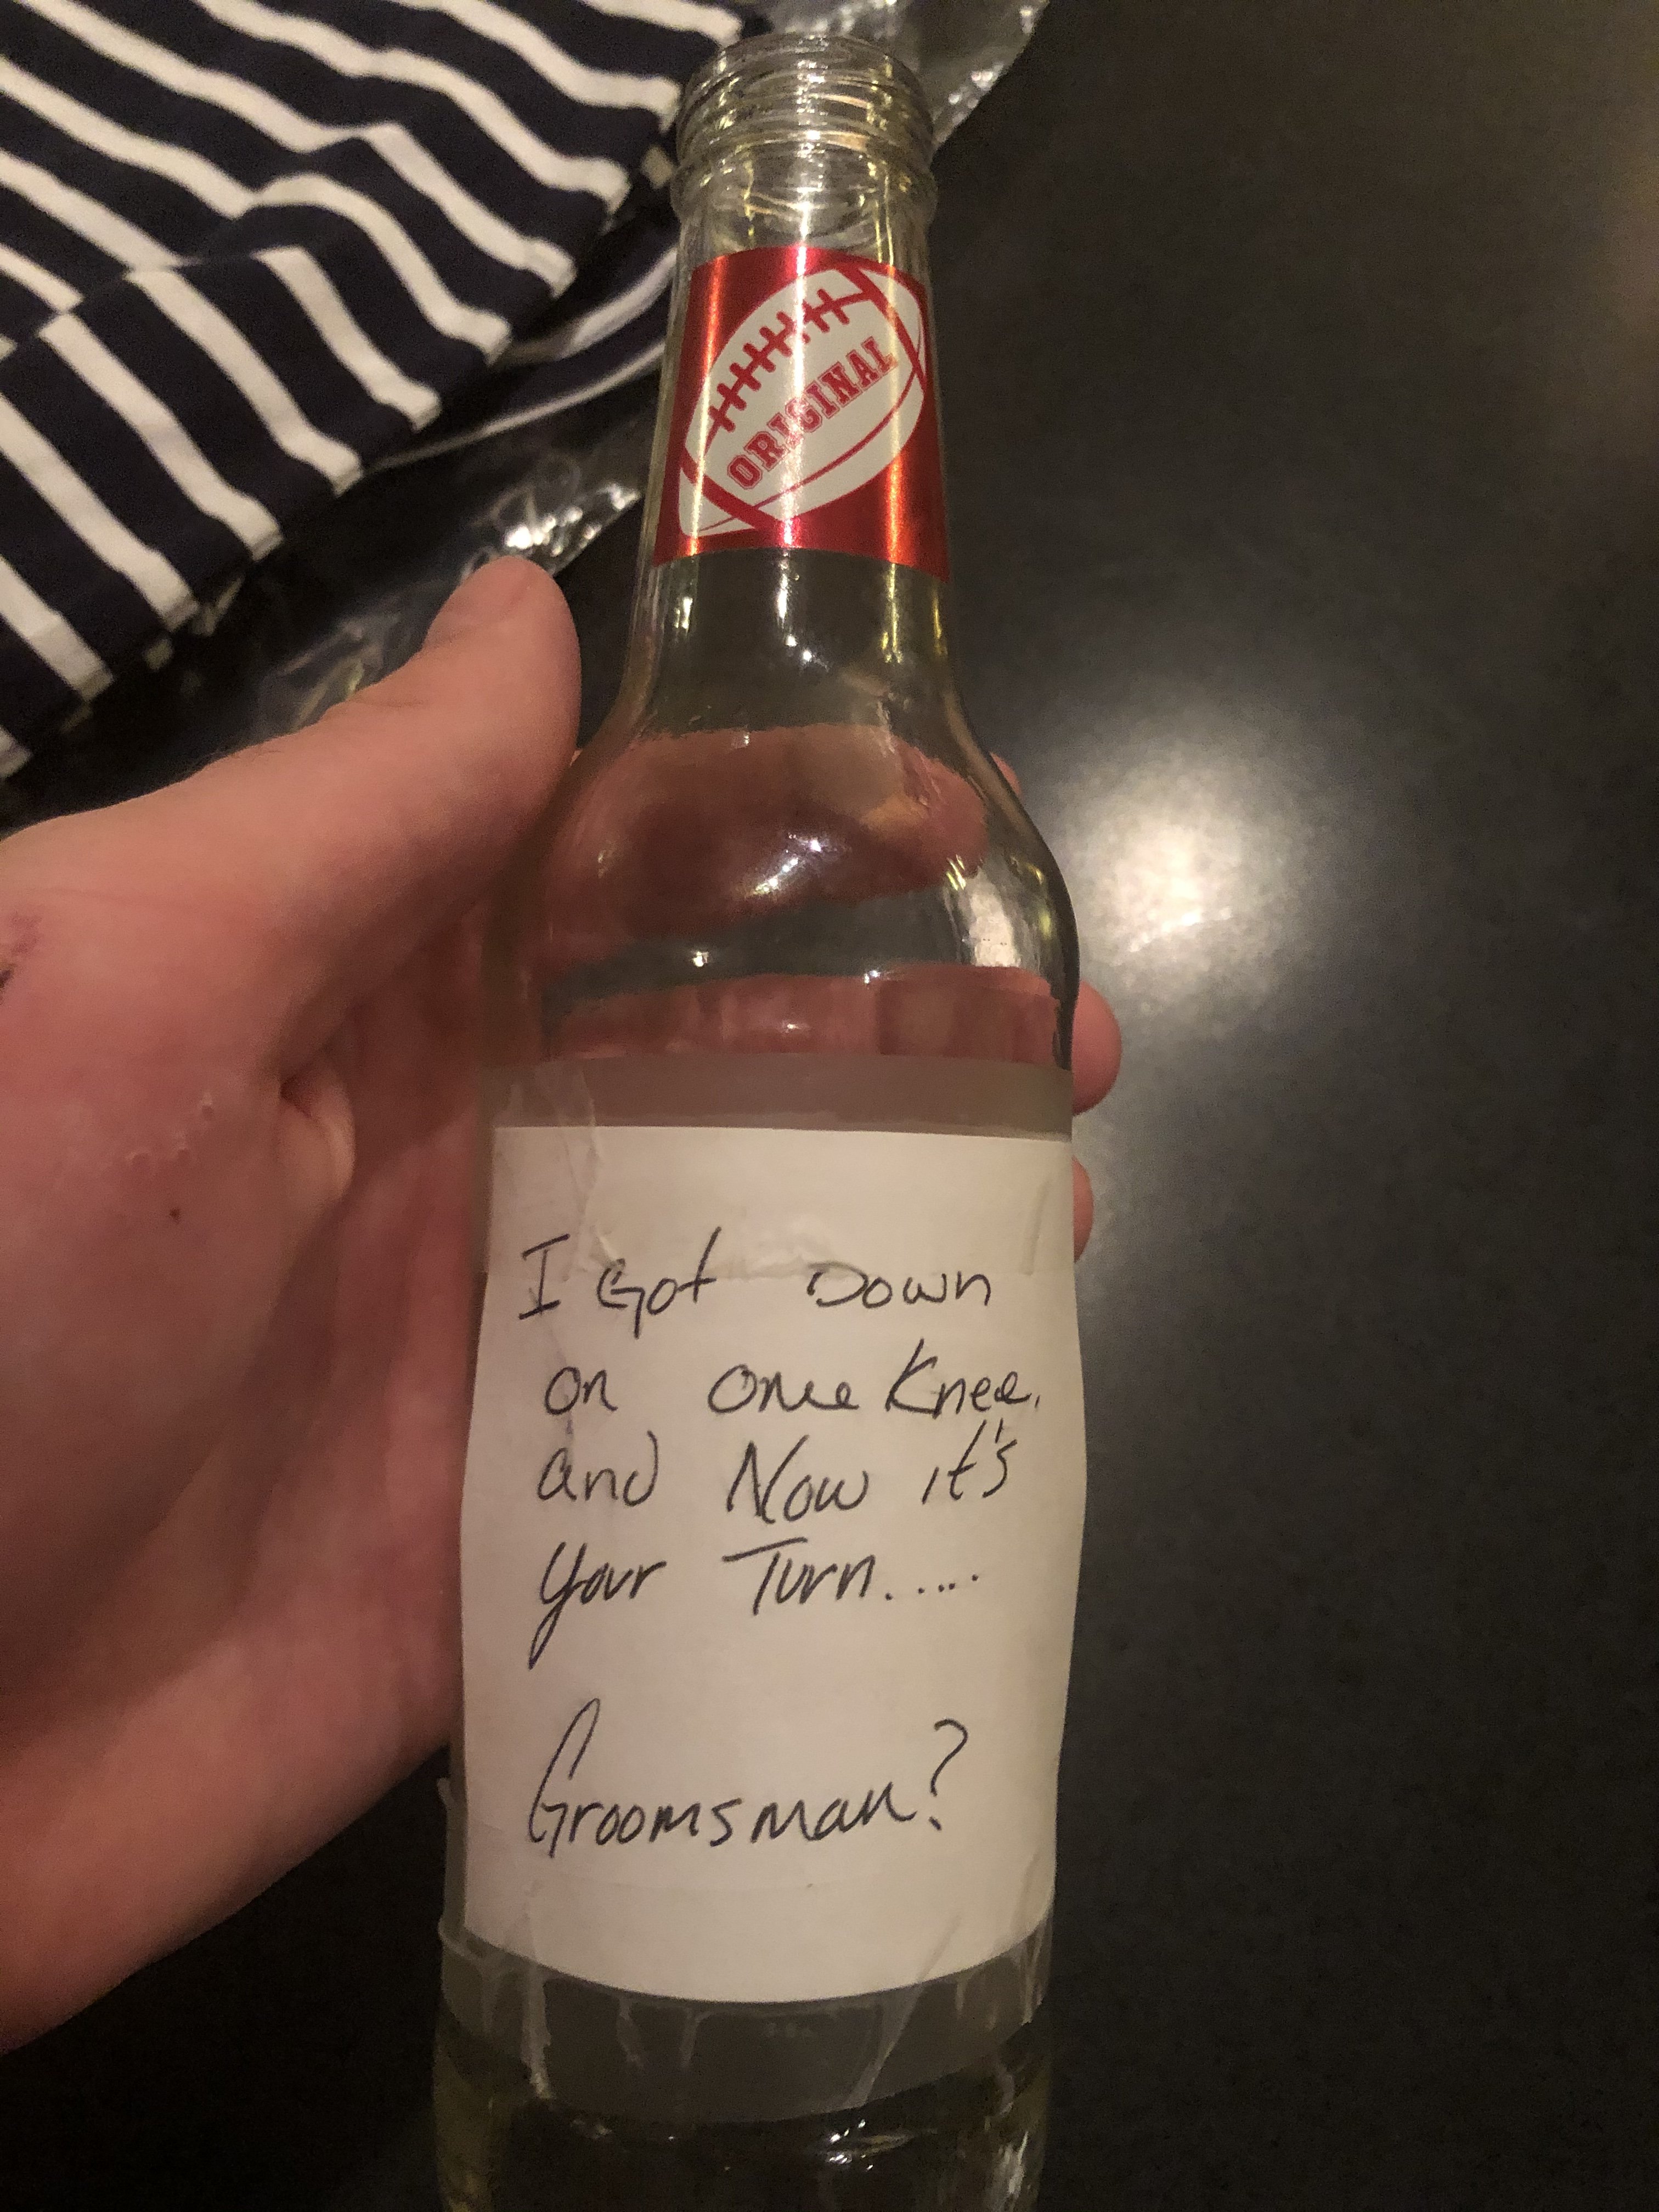 ORIGINAL
I Got Down
on one Knee.
and Now it's
your Turn.....
Groomsman?